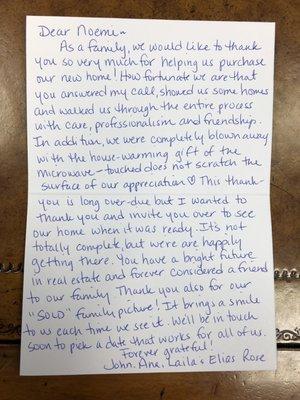 Dear Noemi~
As a family, we would like to thank
you so very much for helping us purchase
our new home! How fortunate we are that
you answered my call, showed us some homes
and walked us through the entire process
with care, professionalism and friendship.
In addition, we were completely blown away
with the house-warming gift of the
microwave - touched does not scratch the
surface of our appreciation ♡ This thank-
you is long over-due but I wanted to
thank you and invite you over to see
our home when it was ready. It's not
totally complete, but we're happily
getting there. You have a bright future
in real estate and forever considered a friend
to our family. Thank you also for our
"SOLD" family picture! It brings a smile
to us each time we see it. We'll be in touch
soon to pick a date that works for all of us.
Forever grateful!
John, Ana, Laila & Elias Rose